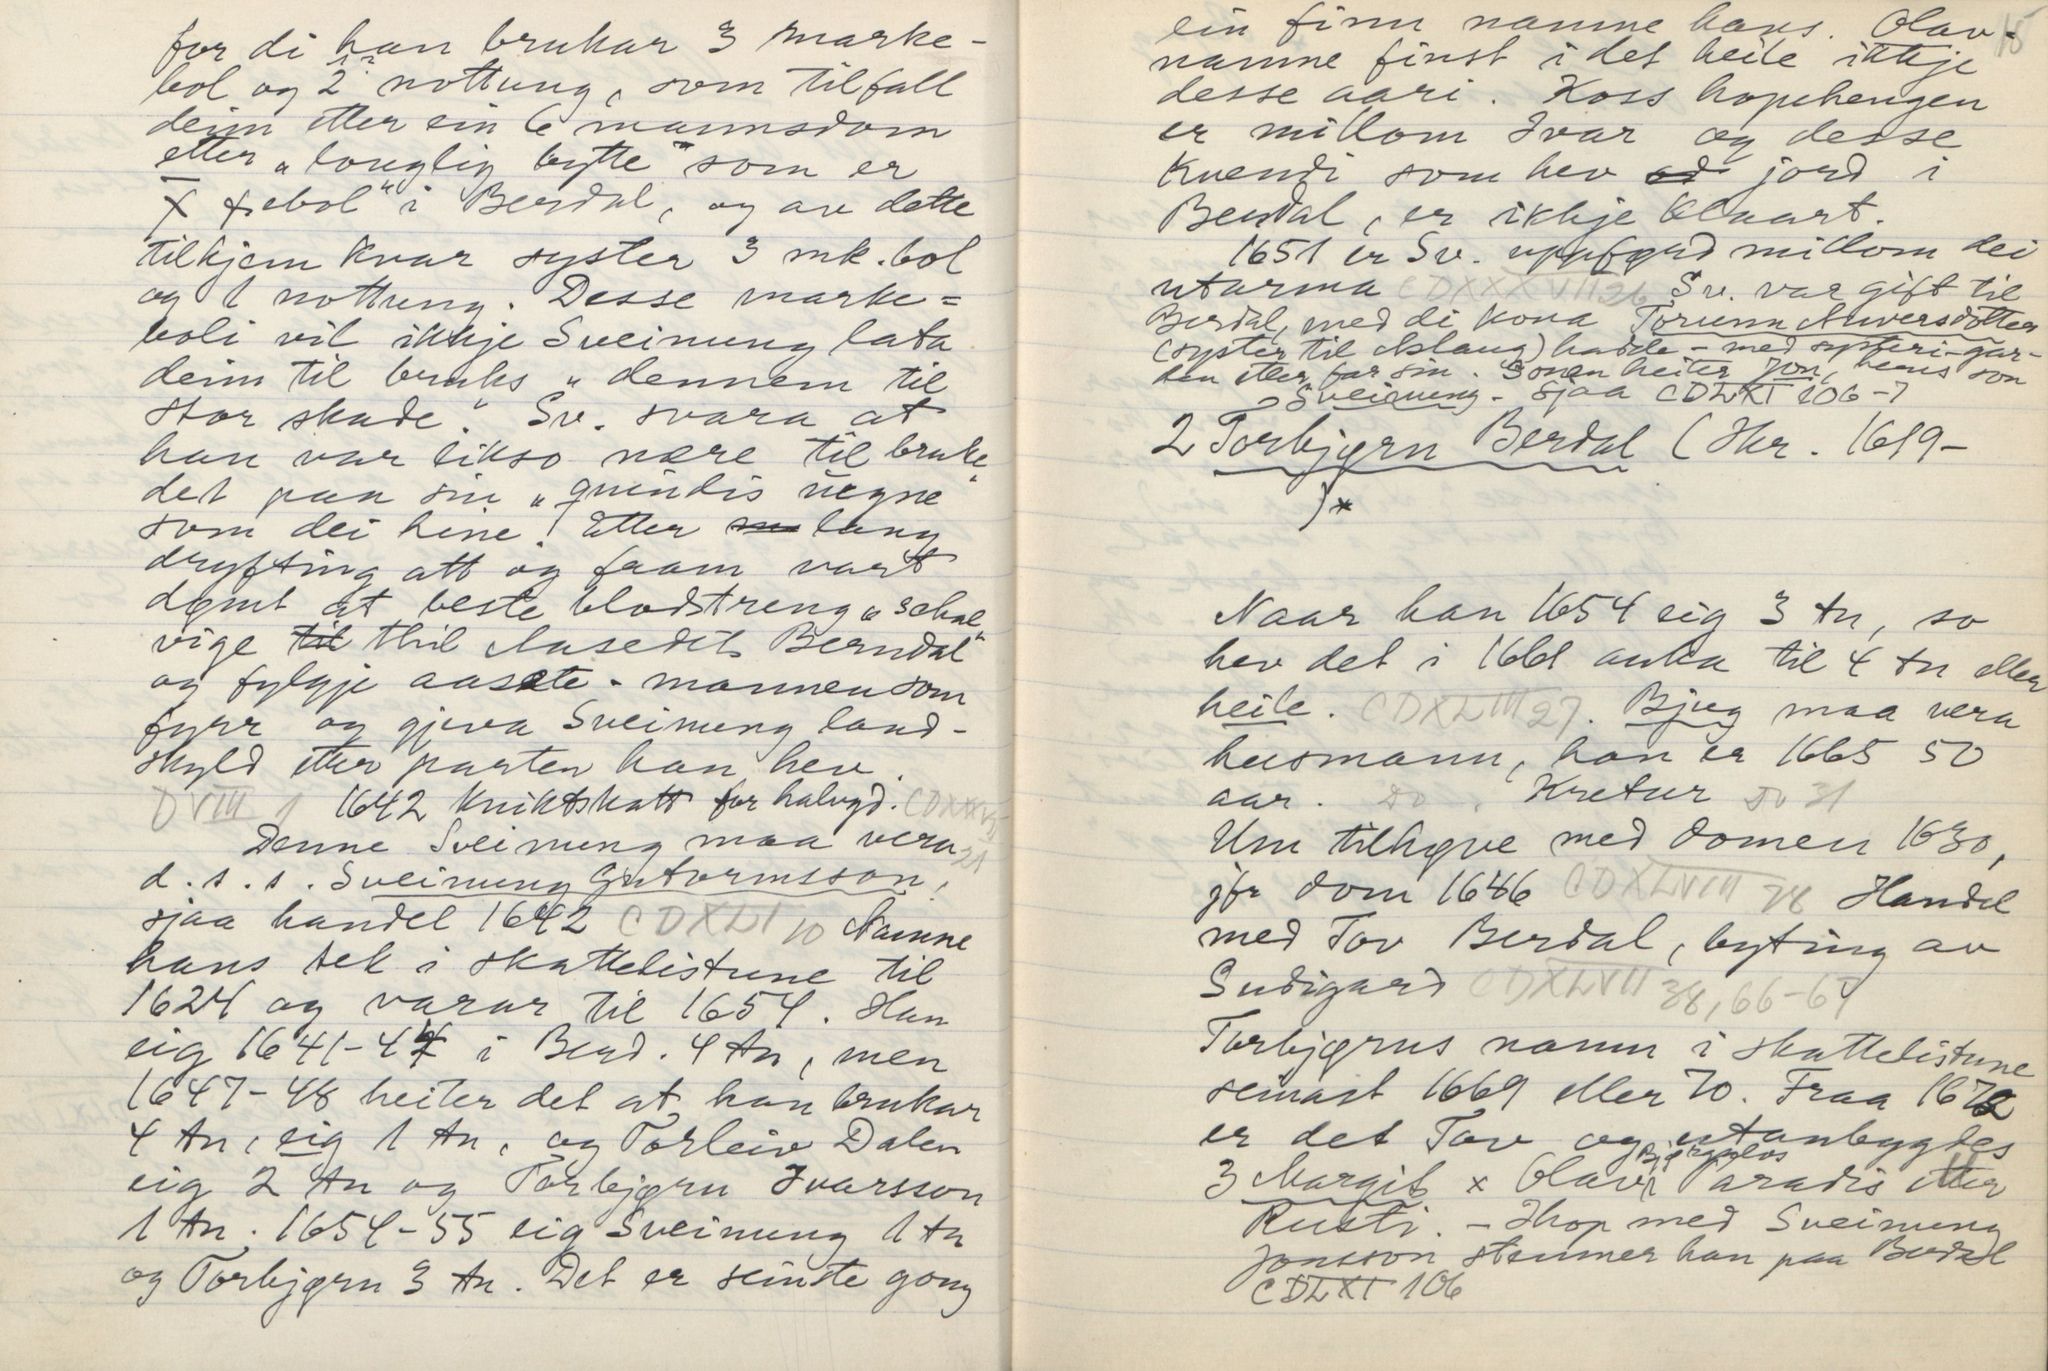 for di han brukar 3 marke-
bol og 2 nottung, som tilfall
deim etter ein 6 mannsdom
etter „louglig bytte" som er
X xebol" i Berdal, og av dette
tilkjem kvar syster 3 mk.bol
og 1 nottung. Desse marke=
boli vil ikkje Sveinung lata
deim til bruks „dennem til
stor skade." Sv. svara at
han var likso nære til bruke
det paa sin „quindis vegne"
som dei hine. Etter lang
dryfting att og fram vart
dømt at beste blodstreng „schal
vige til thil Aasedet Berndal"
og fylgje aasæte-mannen som
fyrr og gjeva Sveinung land-
skyld etter parten han hev.
DVIII 1 1642 kniktskatt for halvgd. CDXXXVI
Denne Sveinung maa vera 21
d.s.s. Sveinung Gutormsson,
sjaa handel 1642 CDXLI 10 Namne
hans tek i skattelistune til
1624 og varar til 1654. Han
eig 1641-44 i Berd. 4 tn, men
1647-48 heiter det at han brukar
4 tn, eig 1 tn, og Torleiv Dalen
eig 2 tn og Torbjørn Ivarsson
1 tn. 1654-55 eig Sveinung 1 tn
og Torbjørn 3 tn. Det er seinste gong
15
ein finn namne hans. Olav-
namne finst i det heile ikkje
desse aari. Koss hopehengen
er millom Ivar og desse
kvendi som hev jord i
Berdal, er ikkje klaart.
1651 er Sv. uppførd millom dei
utarma CDXXXVII 26 Sv. var gift til
Berdal, med di kona Torunn Alversdotter
(syster til Aslaug) hadde - med systeri - gar-
den etter far sin. Sonen heiter Jon, hans son
Sveinung. Sjaa CDLXI 106-7
2 Torbjørn Berdal (Ikr. 1619-
)*
Naar han 1654 eig 3 tn, so
hev det i 1661 auka til 4 tn eller
heile. CDXLIII 27. Bjug maa vera
husmann, han er 1665 50
aar. Do. Kretur Do 31
Um tilhøve med domen 1630,
jfr dom 1646 CDXLVIII 28 Handel
med Tov Berdal, byting av
Sudigard CDXLVII 38, 66-67
Torbjørns namn i skattelistune
seinast 1669 eller 70. Fraa 1672
er det Tov og utanbygdes
Bjørgulvs
3 Margit x Olav Paradis etter
Rusti. - Ihop med Sveinung
Jonsson stemner han paa Berdal
CDLXI 106